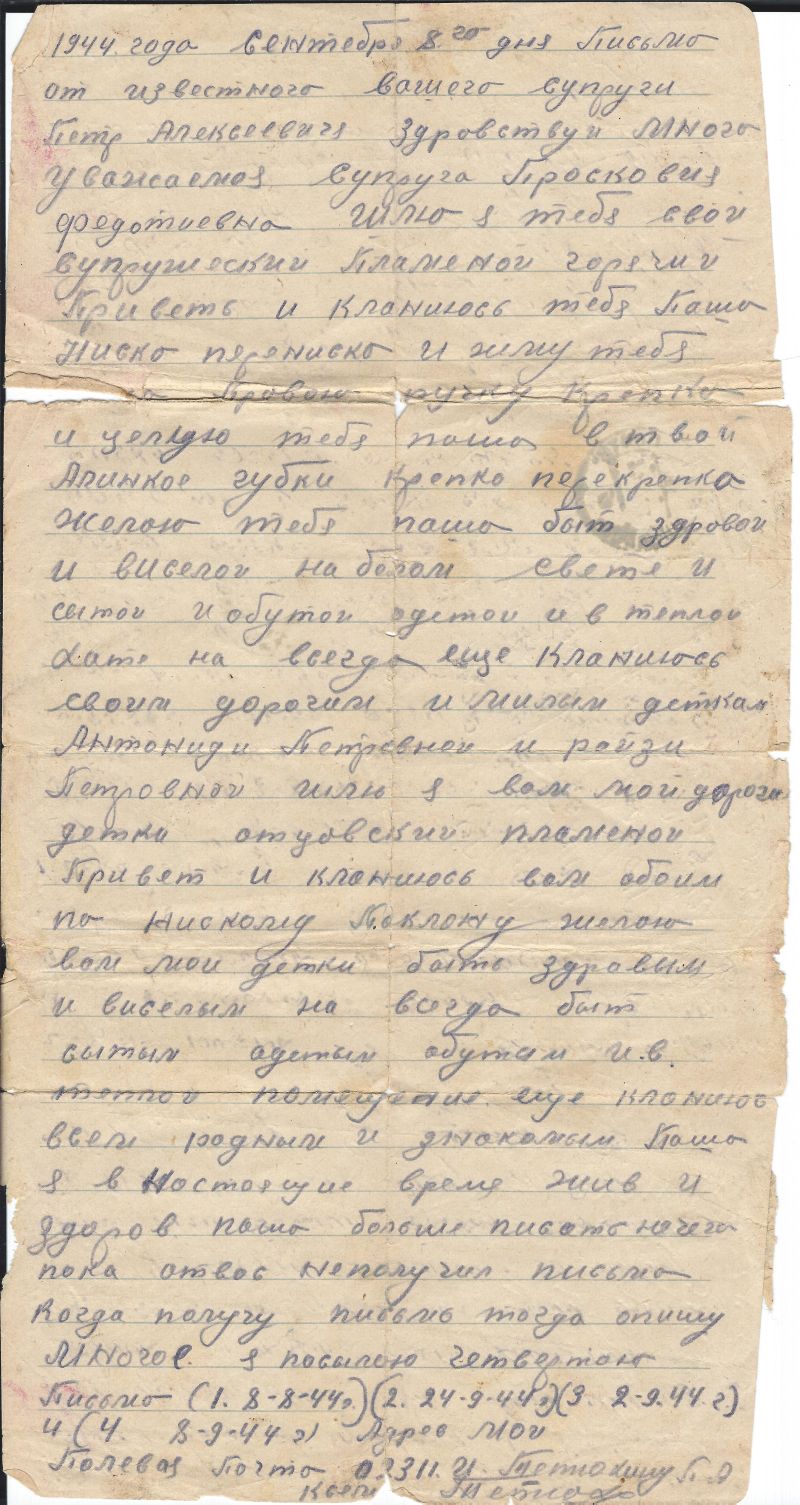 1944. года Сентебря 8.го дня Письмо
от известного вашего супруги
Петр Алексеевичя здровствуй Много
Уважаемоя супруга Просковия
Федотиевна шлю я тебя свой
супружеский Пламеной горячий
Приветь и Кланиюсь тебя Паша
Ниско перениско и жму тебя
Провою ручку Крепко
и целую тебя паша в твои
Алинкое губки Крепко перекрепко
Желою тебя паша быт здровой
и виселой на белом свете и
сытой и обутой одетой и в теплой
Хате на всегда еще Кланиюсь
своим дорогим и милым деткам
Антониди Петровной и райзи
Петровной шлю я вам мои дороги
детки отцовский пламеной
Привет и кланиюсь вам обоим
по нискому Поклону желаю
вам мои детки быть здровым
и виселым на всегда быт
сытым одетым обутам и.в.
теплой помещение еще кланиюс
всем родным и знакомым Паша
я в Настоящие время жив и
здоров паша больше писать нечега
пока отвас неполучил письма
Когда получу письмь тогда опишу
Многое. я посылаю четвертою
Письмо (1. 8-8-44г.)(2. 24-9-44г)(3. 2-9.44.г)
и (4. 8-9-44г) Адрес Мой
Полевая Почта П.А